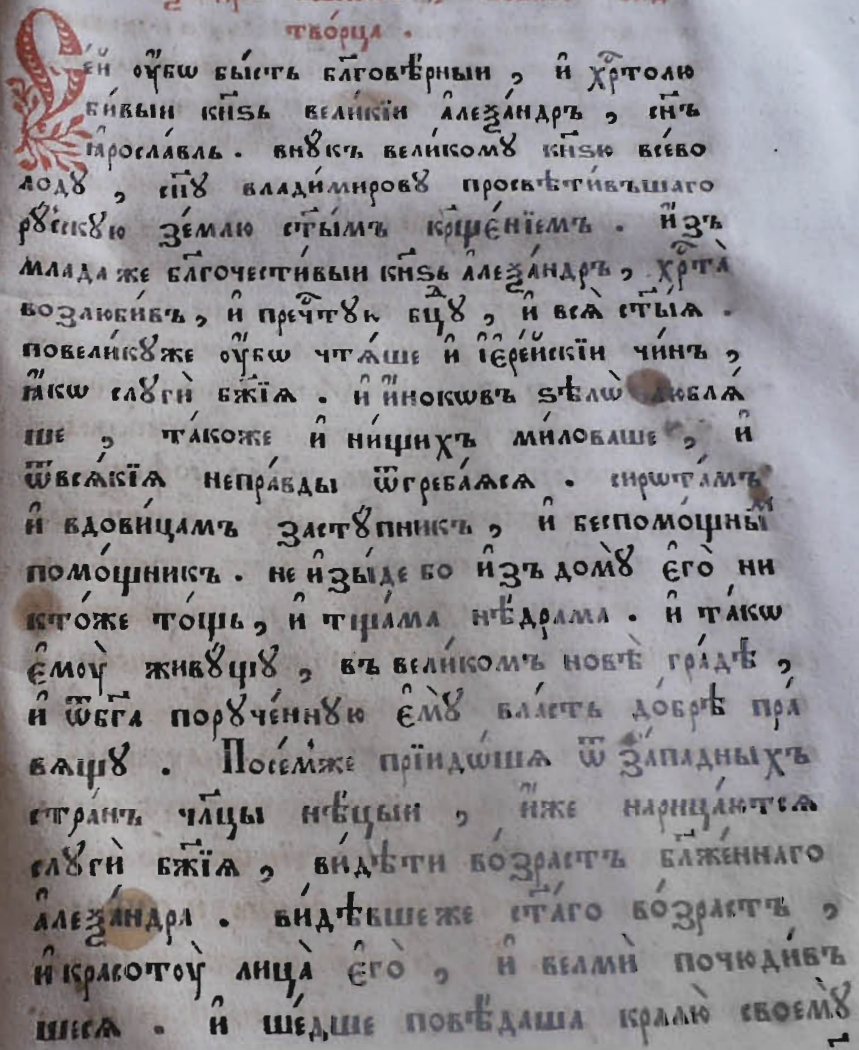 тво́рца .
Се́й ᲂу҆́бѡ бы́сть бл҃говѣ́рныи , и҆ хрⷭ҇толю
би́выи кн҃ѕь вели́кїи а҆леѯа́ндръ , сн҃ъ
ꙗ҆росла́вль . внꙋ́къ вели́комꙋ кн҃ѕю все́во
лодꙋ , сн҃ꙋ влади́мировꙋ просвѣти́въшаго
рꙋ́сскꙋю зе́млю ст҃ы́мъ кр҃ще́нїемъ . и҆́зъ
млада же бл҃гочести́выи кн҃ѕь а҆леѯа́ндръ , хрⷭ҇та̀
возлюби́въ , и҆ пречⷭ҇тꙋю бцⷣꙋ , и҆ всѧ̀ ст҃ы́ѧ .
повели́кꙋже ᲂу҆́бѡ чтѧ́ше и҆ і҆ере́йскїи чи́нъ ,
ꙗ҆́кѡ слꙋгѝ бж҃їѧ . и҆ и҆́нокѡвъ ѕѣлѡ̀ люблѧ́
ше , та́коже и҆ ни́щихъ ми́ловаше , и҆
ѿвсѧ́кїѧ непра́вды ѿгреба́ѧсѧ . сирѡта́мъ
и҆ вдови́цамъ застꙋ́пникъ , и҆ беспомо́щныⷨ
помо́щникъ . не и҆зы́де бо и҆́зъ до́мꙋ є҆гѡ̀ ни
кто́же то́щь , и҆ тща́ма нѣ́драма . и҆ та́кѡ
є҆моꙋ̀ живꙋ́щꙋ , въ вели́комъ новѣ̀ гра́дѣ ,
и҆ ѿбг҃а порꙋче́ннꙋю є҆мꙋ̀ вла́сть до́брѣ пра́
вѧщꙋ . Посе́мже прїидѡ́шѧ ѿ за́падныхъ
стра́нъ чл҃цы нѣ́цыи , и҆́же нарица́ютсѧ
слꙋгѝ бж҃їѧ , ви́дѣти во́зрастъ бл҃же́ннаго
а҆леѯа́ндра . ви́дѣвше же ст҃а́го во́зрастъ ,
и҆ красотоꙋ̀ лица̀ є҆гѡ̀ , и҆ велмѝ почюди́въ
шесѧ . и҆ ше́дше повѣ́даша кралю̀ своемꙋ̀